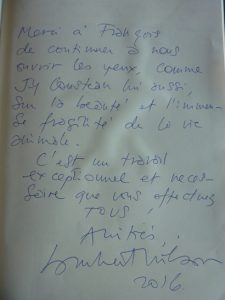 Merci à François
de continuer à nous
ouvrir les yeux, comme
JY Cousteau lui aussi,
sur la beauté et l'immen-
se fragilité de la vie
animale.
C'est un travail
exceptionnel et néces-
saire que vous effectuez
TOUS !
Amitiés,
Lambert Wilson
2016